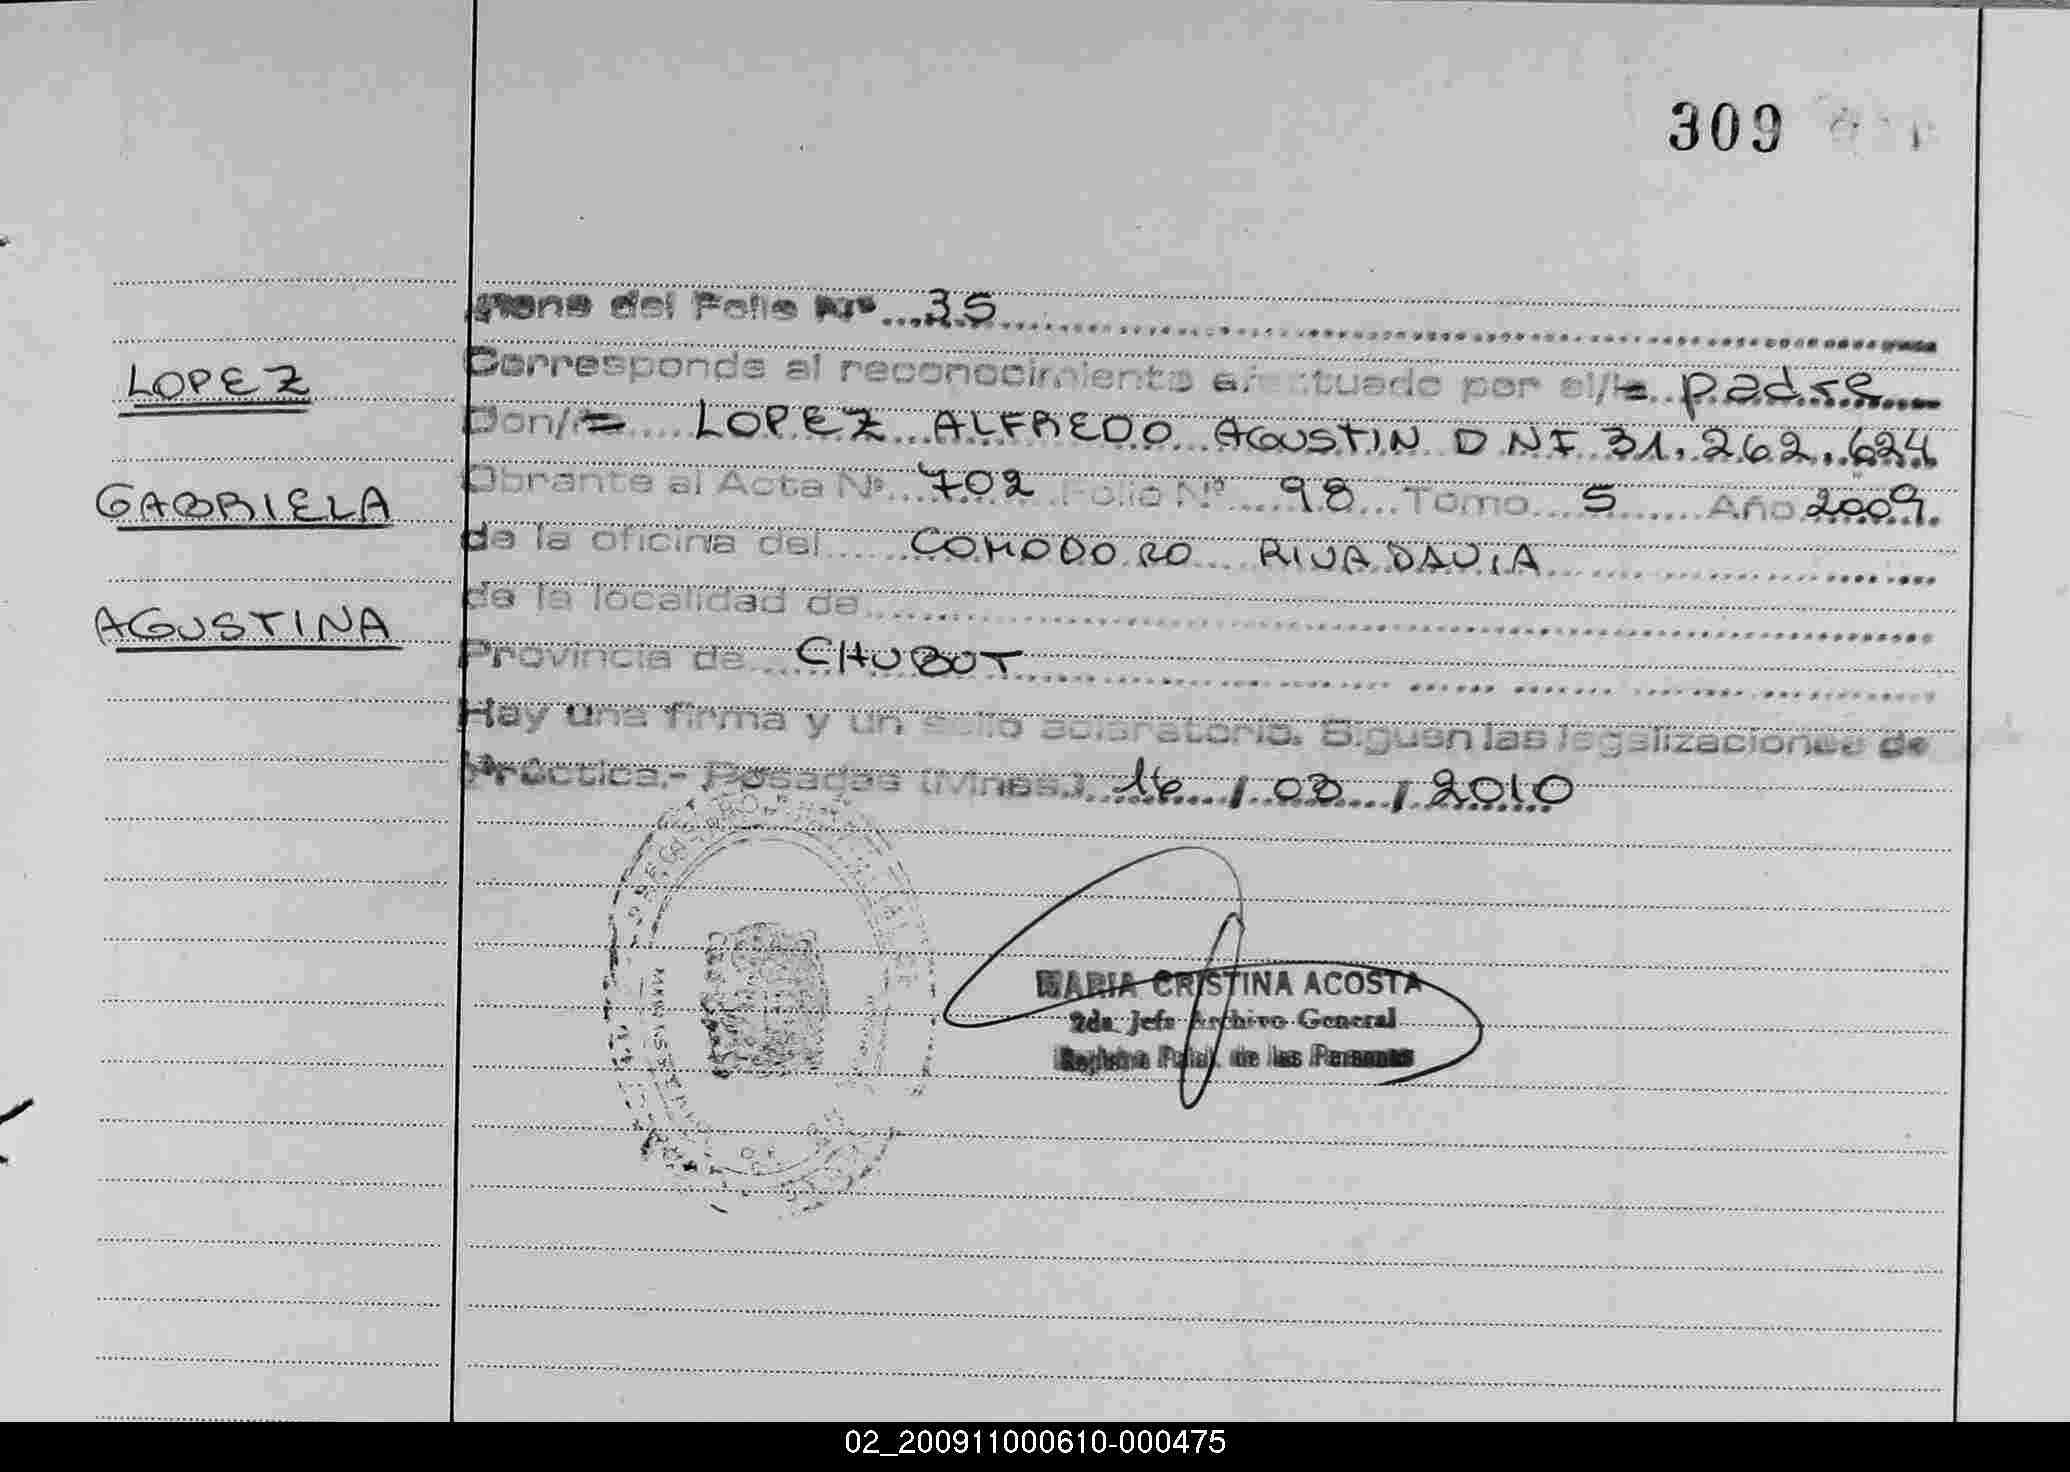 309
Viene del Folio Nº 35
Corresponde al reconocimiento efectuado por el/la padre
LOPEZ
Don/ LOPEZ ALFREDO AGUSTIN DNI 31.262.624
Obrante al Acta Nº 702 Folio Nº 98 Tomo 5 Año 2009.
GABRIELA
de la oficina del COMODORO RIVADAVIA
de la localidad de
AGUSTINA
Provincia de CHUBUT
Hay una firma y un sello aclaratorio. Siguen las legalizaciones de
Práctica.- Posadas (Mnes.) 16 / 03 / 2010
MARIA CRISTINA ACOSTA
2da. Jefe Archivo General
Registro Pcial. de las Personas
MINISTERIO DE
02_200911000610-000475